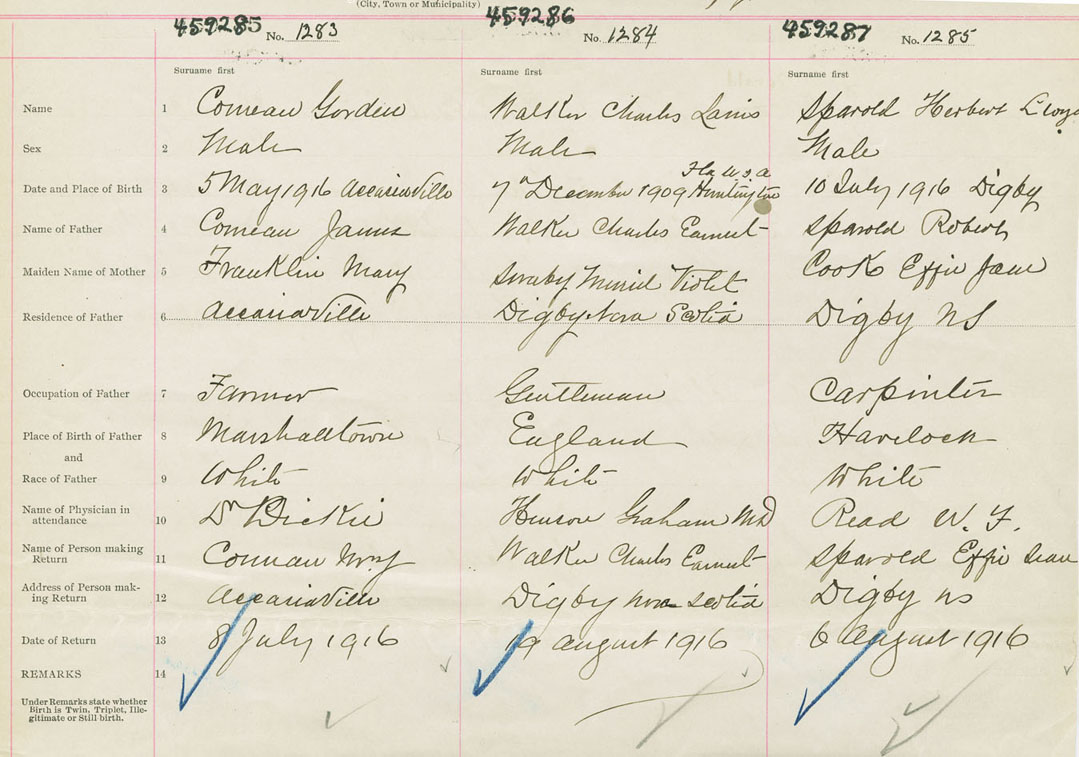 (City, Town or Municipality)
459285 No. 1283 459286 No. 1284 459287 No. 1285
Surname first Surname first Surname first
Name 1 Comeau Gorden Walker Charles Sparold Herbert
Sex 2 Male Male Male
Fla U.S.A
Date and Place of Birth 3 5 May 1916 AccaciaVille 7th December 1909 Huntington 10 July 1916 Digby
Name of Father 4 Comeau James Walker Charles Earnest Sparold Robert
Maiden Name of Mother 5 Franklin Mary Violet Cook Effie Jane
Residence of Father 6 AccaciaVille Digby Nova Scotia Digby NS
Occupation of Father 7 Farmer Gentleman Carpinter
Place of Birth of Father 8 Marshalltown England Havelock
and
Race of Father 9 White White White
Name of Physician in
attendance 10 Dr Dickie Graham MD Read W. F.
Name of Person making
Return 11 Comeau Mary Walker Charles Earnest Sparold Effie Jean
Address of Person mak-
ing Return 12 AccaciaVille Digby Nova Scotia Digby NS
Date of Return 13 8 July 1916 19 August 1916 6 August 1916
REMARKS 14
Under Remarks state whether
Birth is Twin, Triplet, Ille-
gitimate or Still birth.